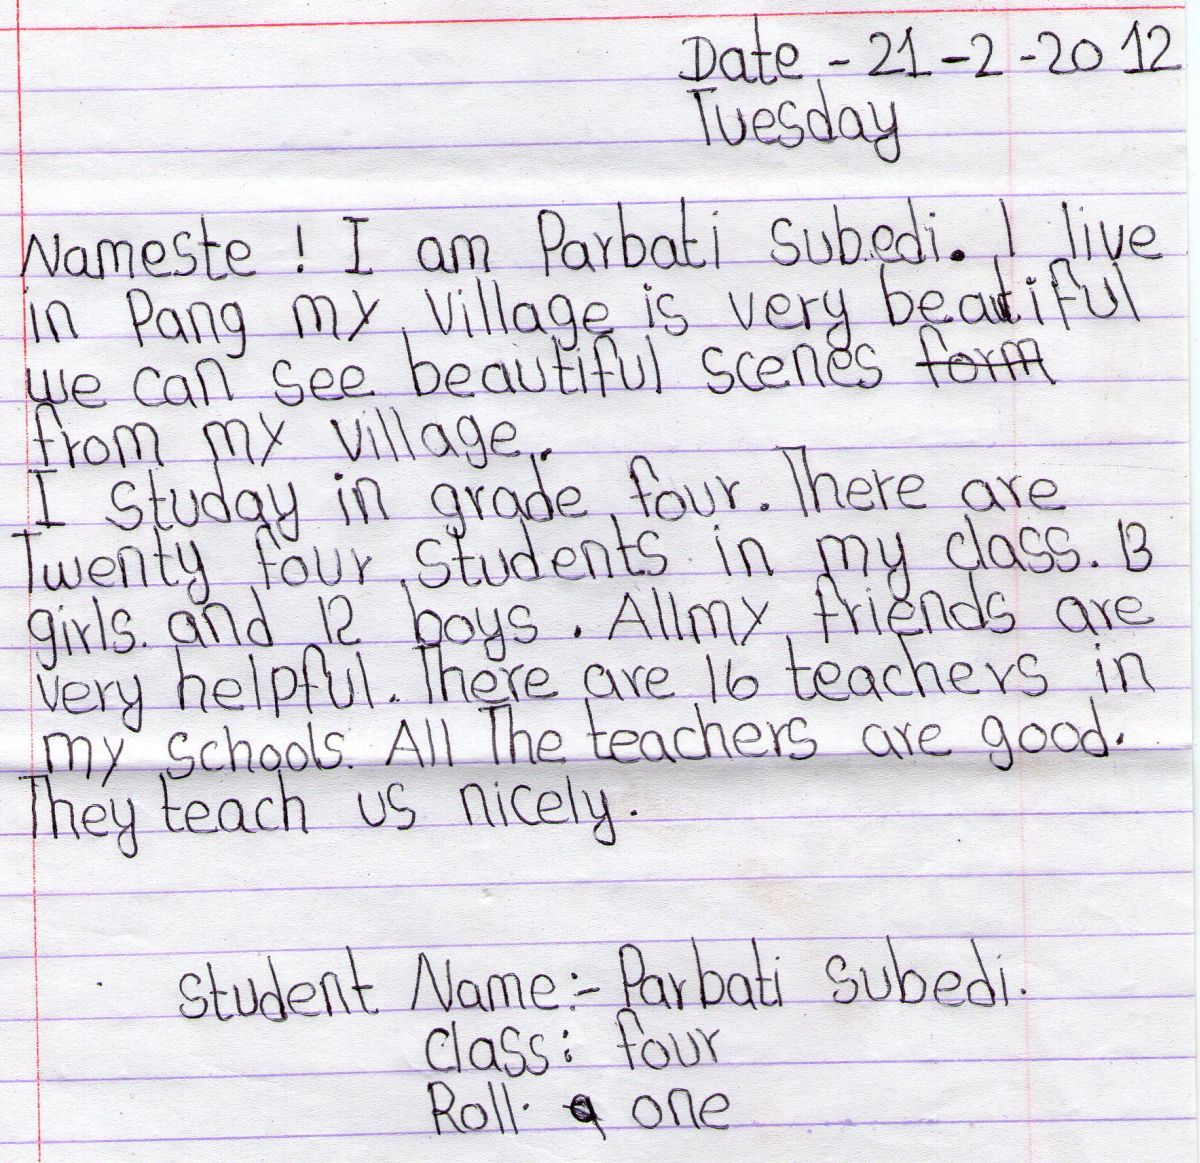 Date - 21-2-2012
Tuesday
Nameste ! I am Parbati subedi. I live
in Pang my village is very beautiful
we can see beautiful scenes form
from my village.
I studay in grade four. There are
Twenty four students in my class. 13
girls. and 12 boys. All my friends are
very helpful. There are 16 teachers in
my schools. All The teachers are good.
They teach us nicely.
student Name:- Parbati subedi.
class: four
Roll. one